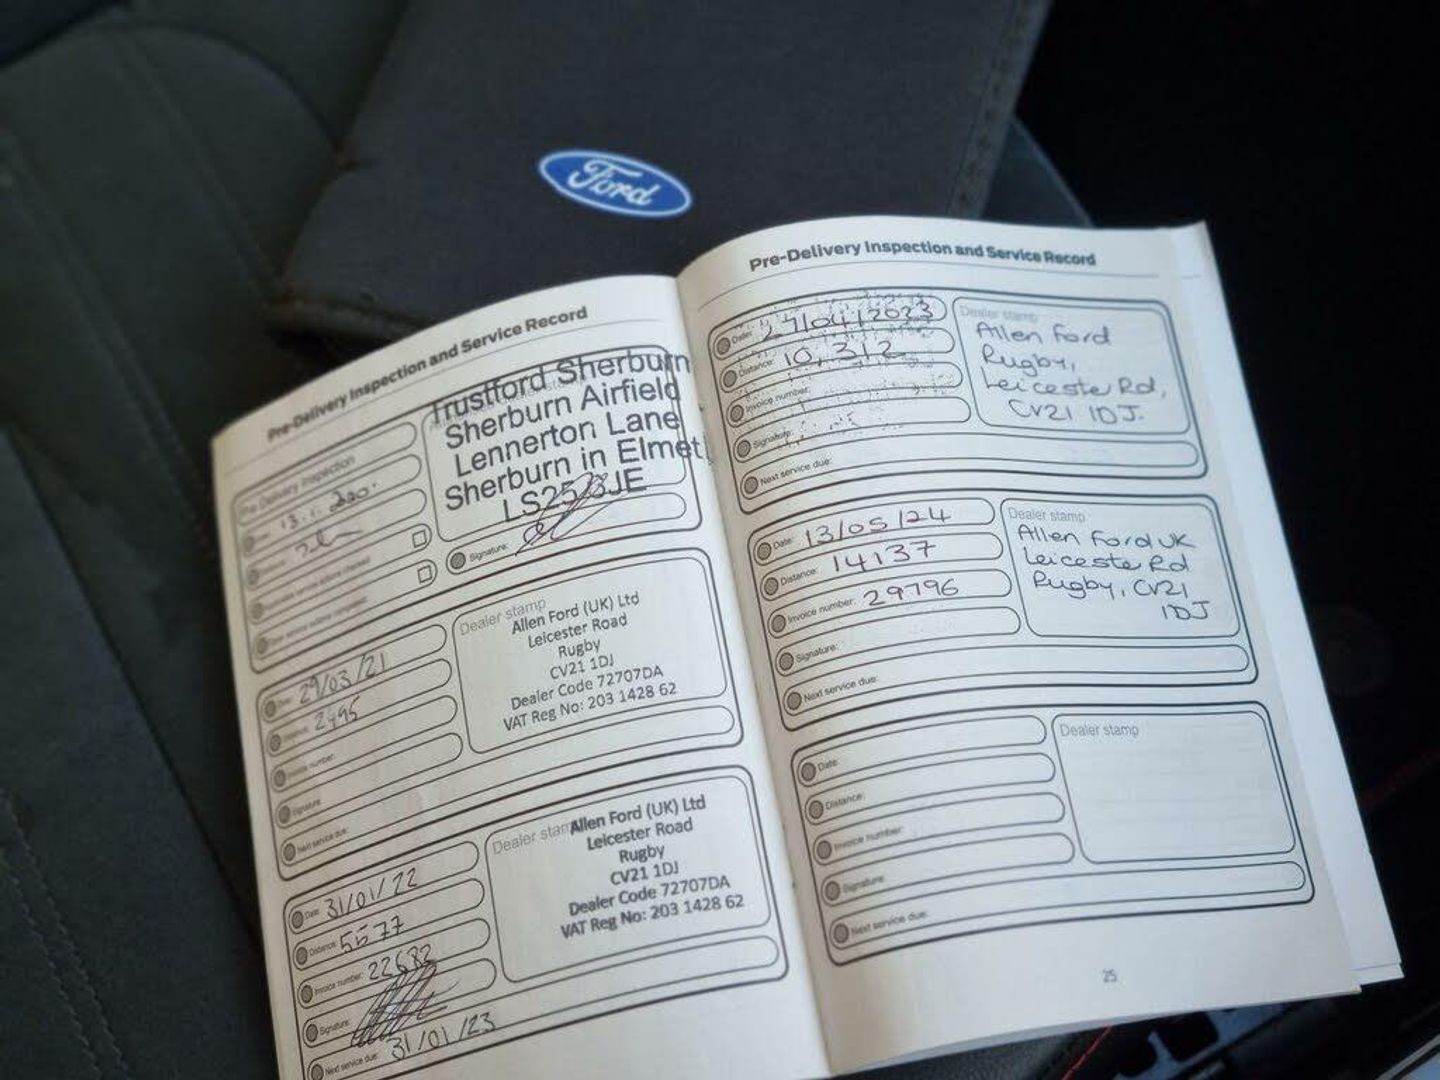 Ford
Pre-Delivery Inspection and Service Record
Pre Delivery Inspection
13.1. 2020.
Trustford Sherburn
Sherburn Airfield
Lennerton Lane
Sherburn in Elmet
LS25 JE
Signature:
Date: 29/03/21
Distance: 2495
Invoice number:
Signature:
Next service due:
Dealer stamp
Allen Ford (UK) Ltd
Leicester Road
Rugby
CV21 1DJ
Dealer Code 72707DA
VAT Reg No: 203 1428 62
Date: 31/01/22
Distance: 5577
Invoice number: 22682
Signature:
Next service due: 31/01/23
Dealer stamp
Allen Ford (UK) Ltd
Leicester Road
Rugby
CV21 1DJ
Dealer Code 72707DA
VAT Reg No: 203 1428 62
Pre-Delivery Inspection and Service Record
Date: 27/04/2023
Distance: 10,312
Invoice number:
Signature:
Next service due:
Dealer stamp
Allen Ford
Rugby,
Leicester Rd,
CV21 1DJ.
Date: 13/05/24
Distance: 14137
Invoice number: 29796
Signature:
Next service due:
Dealer stamp
Allen Ford UK
Leiceste Rd
Rugby, CV21
1DJ
Date:
Distance:
Invoice number:
Signature:
Next service due:
Dealer stamp
25